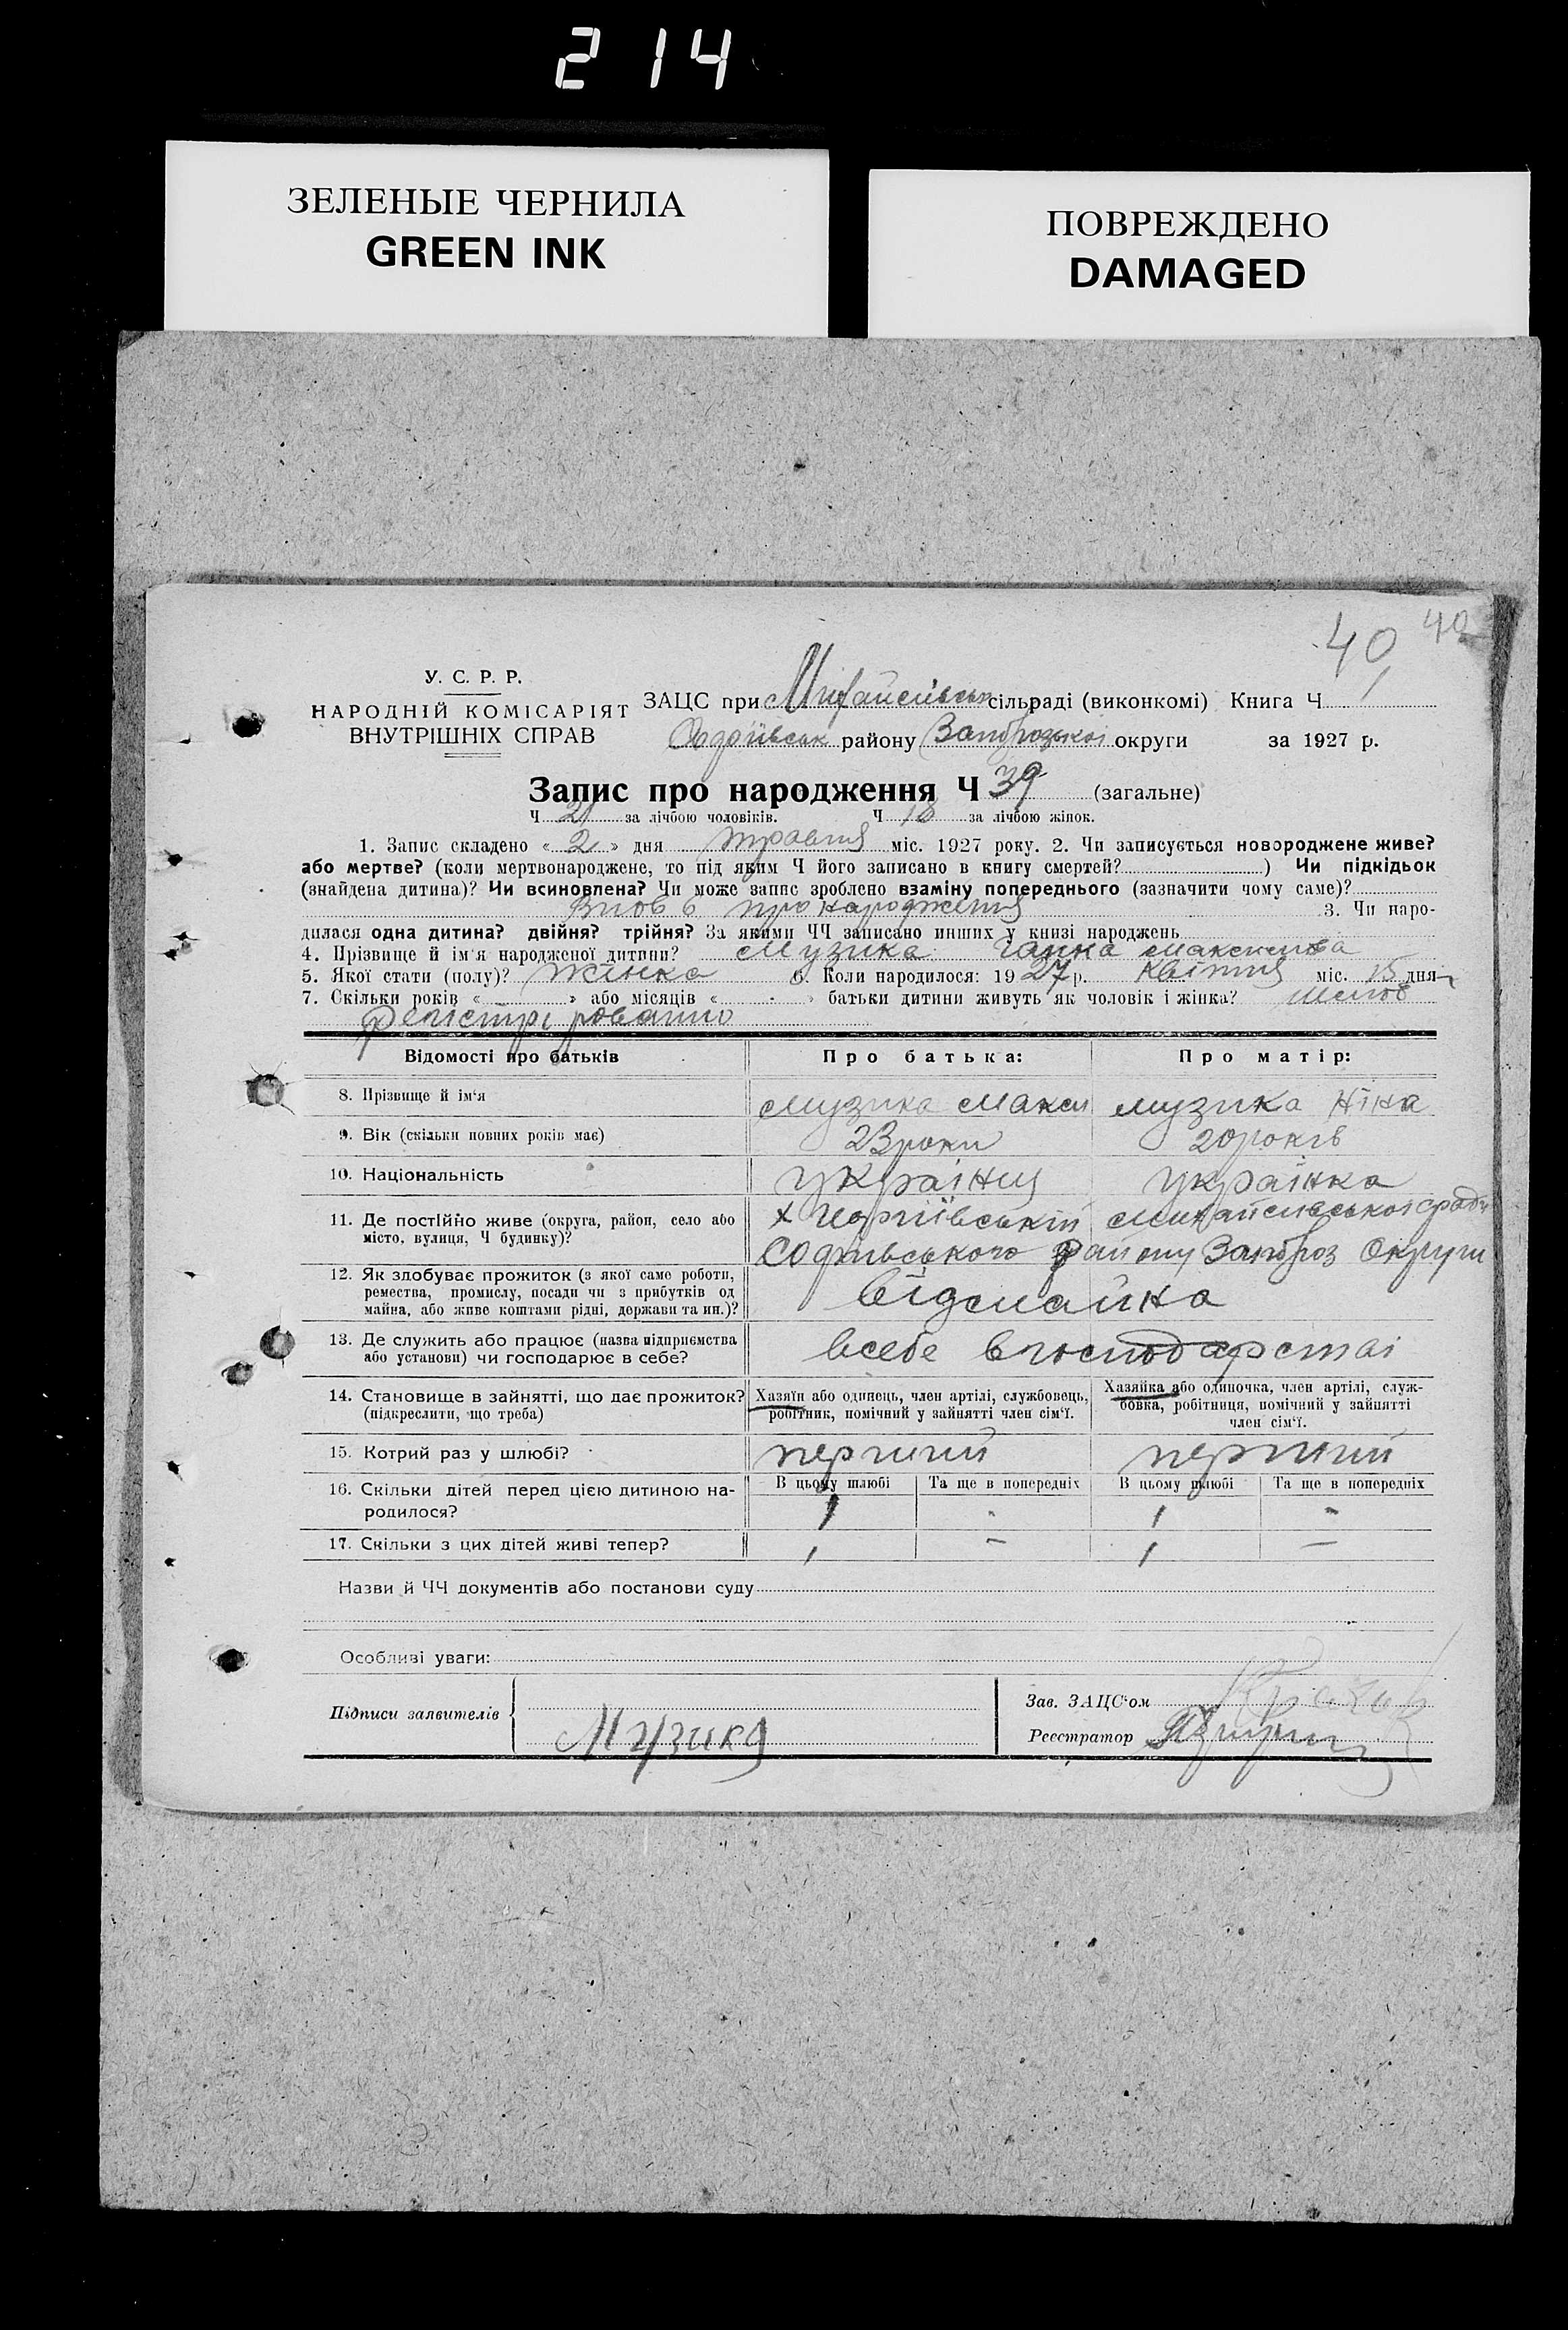 2 14
ЗЕЛЕНЫЕ ЧЕРНИЛА
GREEN INK
ПОВРЕЖДЕНО
DAMAGED
40 40
У. С. Р. Р.
НАРОДНІЙ КОМІСАРІЯТ
ВНУТРІШНІХ СПРАВ
ЗАЦС при сільраді (виконкомі) Книга Ч 1
району округи за 1927 р.
Запис про народження Ч 39 (загальне)
Ч 21 за лічбою чоловіків. Ч 18 за лічбою жінок.
1. Запис складено « 2 » дня травня міс. 1927 року. 2. Чи записується новороджене живе?
або мертве? (коли мертвонароджене, то під яким Ч його записано в книгу смертей? ) Чи підкідьок
(знайдена дитина)? Чи всиновлена? Чи може запис зроблено взаміну попереднього (зазначити чому саме)?
про народження 3. Чи наро-
дилася одна дитина? двійня? трійня? За якими ЧЧ записано инших у книзі народжень
4. Прізвище й ім'я народженої дитини? Музика Ганна Максимова
5. Якої стати (полу)? Жінка 6. Коли народилося: 1927 р. Квітня міс. 15 дня
7. Скільки років « » або місяців « » батьки дитини живуть як чоловік і жінка?
Відомості про батьків Про батька: Про матір:
8. Прізвище й ім'я Музика Макси музика Ніна
9. Вік (скільки повних років має) 23 роки 20 років
10. Національність українец українка
11. Де постійно живе (округа, район, село або
місто, вулиця, Ч будинку)?
Софіївського району Запороз Округи
12. Як здобуває прожиток (з якої саме роботи,
ремества, промислу, посади чи з прибутків од
майна, або живе коштами рідні, держави та ин.)?
від майна
13. Де служить або працює (назва підприємства
або установи) чи господарює в себе?
всебе в господарстві
14. Становище в зайнятті, що дає прожиток?
(підкреслити, що треба)
Хазяїн або одинець, член артілі, службовець,
робітник, помічний у зайнятті член сім'ї.
Хазяйка або одиночка, член артілі, служ-
бовка, робітниця, помічний у зайнятті
член сім'ї.
15. Котрий раз у шлюбі? перший перший
16. Скільки дітей перед цією дитиною на-
родилося?
В цьому шлюбі Та ще в попередніх В цьому шлюбі Та ще в попередніх
1 - 1 -
17. Скільки з цих дітей живі тепер? 1 — 1 —
Назви й ЧЧ документів або постанови суду
Особливі уваги:
Підписи заявителів Музика
Зав. ЗАЦС'ом
Реєстратор